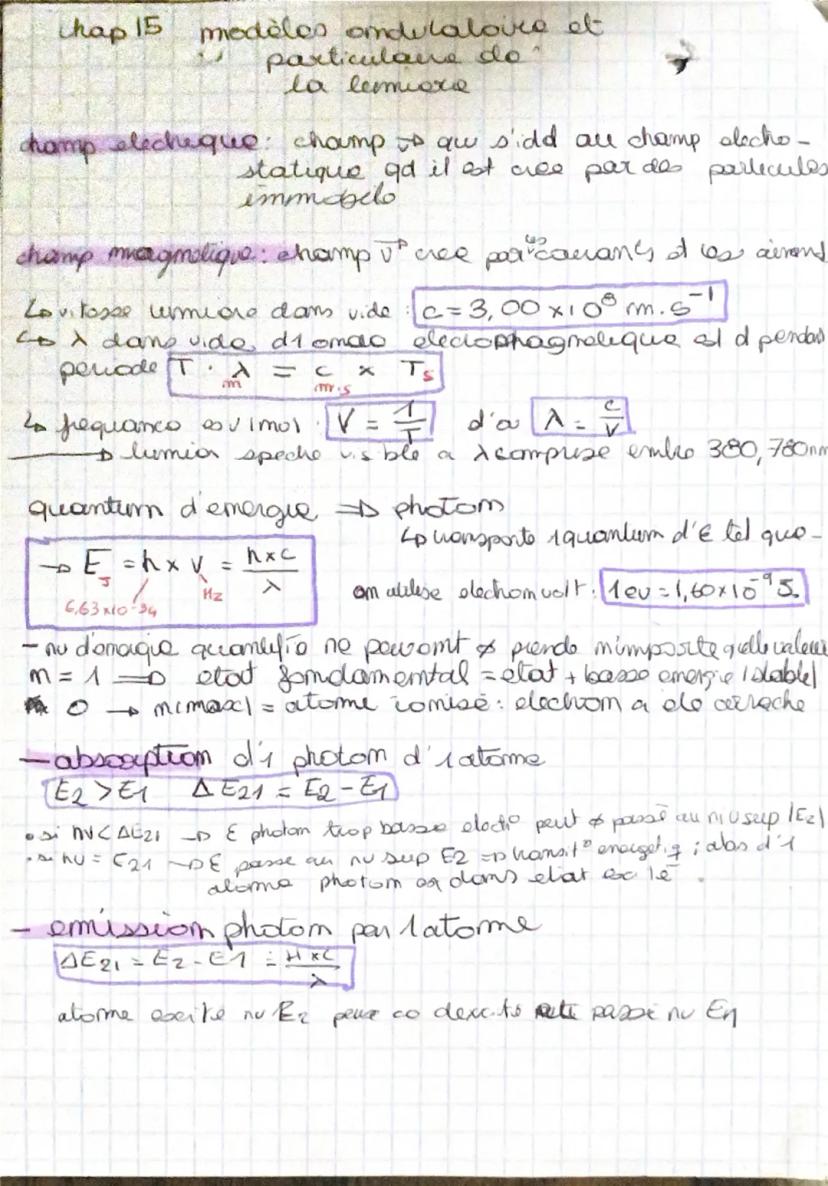 chap 15 modèles ondulatoire et
particulaire de
la lumiere
champ electrique : champ → qui s'idd au champ electro-
statique qd il est cree par des particules
immobile
champ magnetique : champ V→ cree par les courants et les aimants
↳ vitesse lumiere dans vide : c = 3,00 × 10⁸ m.s⁻¹
↳ λ dans vide, d1 onde electromagnetique est d pendas
periode T . λ = c × T s
m m.s
↳ frequence es v 1 mol : V = 1/T d'a λ = c/V
→ lumier spectre visible a λ comprise entre 380, 780nm
quantum d'energie ⇒ photon
↳ transporte 1 quantum d'E tel que -
→ E = h × V = h×c/λ
J Hz
6,63×10⁻³⁴
on utilise electronvolt : 1ev = 1,60×10⁻¹⁹J.
- nv d'energie quantifie ne peuvent ≠ prendre n'importe quelle valeur
n = 1 ⇒ etat fondamental = etat + basse energie (stable)
0 → n(max) = atome ionisé : electron a ete arraché
- absorption d'1 photon d'1 atome
E2 > E1 ΔE21 = E2 - E1
• si hV < ΔE21 → E photon trop basse electr° peut ≠ passé au niv sup (E2)
• si hV = E21 → E passe au nv sup E2 ⇒ transit° energetiq ; abs d'1
atome photon es dans etat excité .
- emission photon par 1 atome
ΔE21 = E2 - E1 = H×C/λ
atome excité nv E2 peut se dexcité passe nv E1